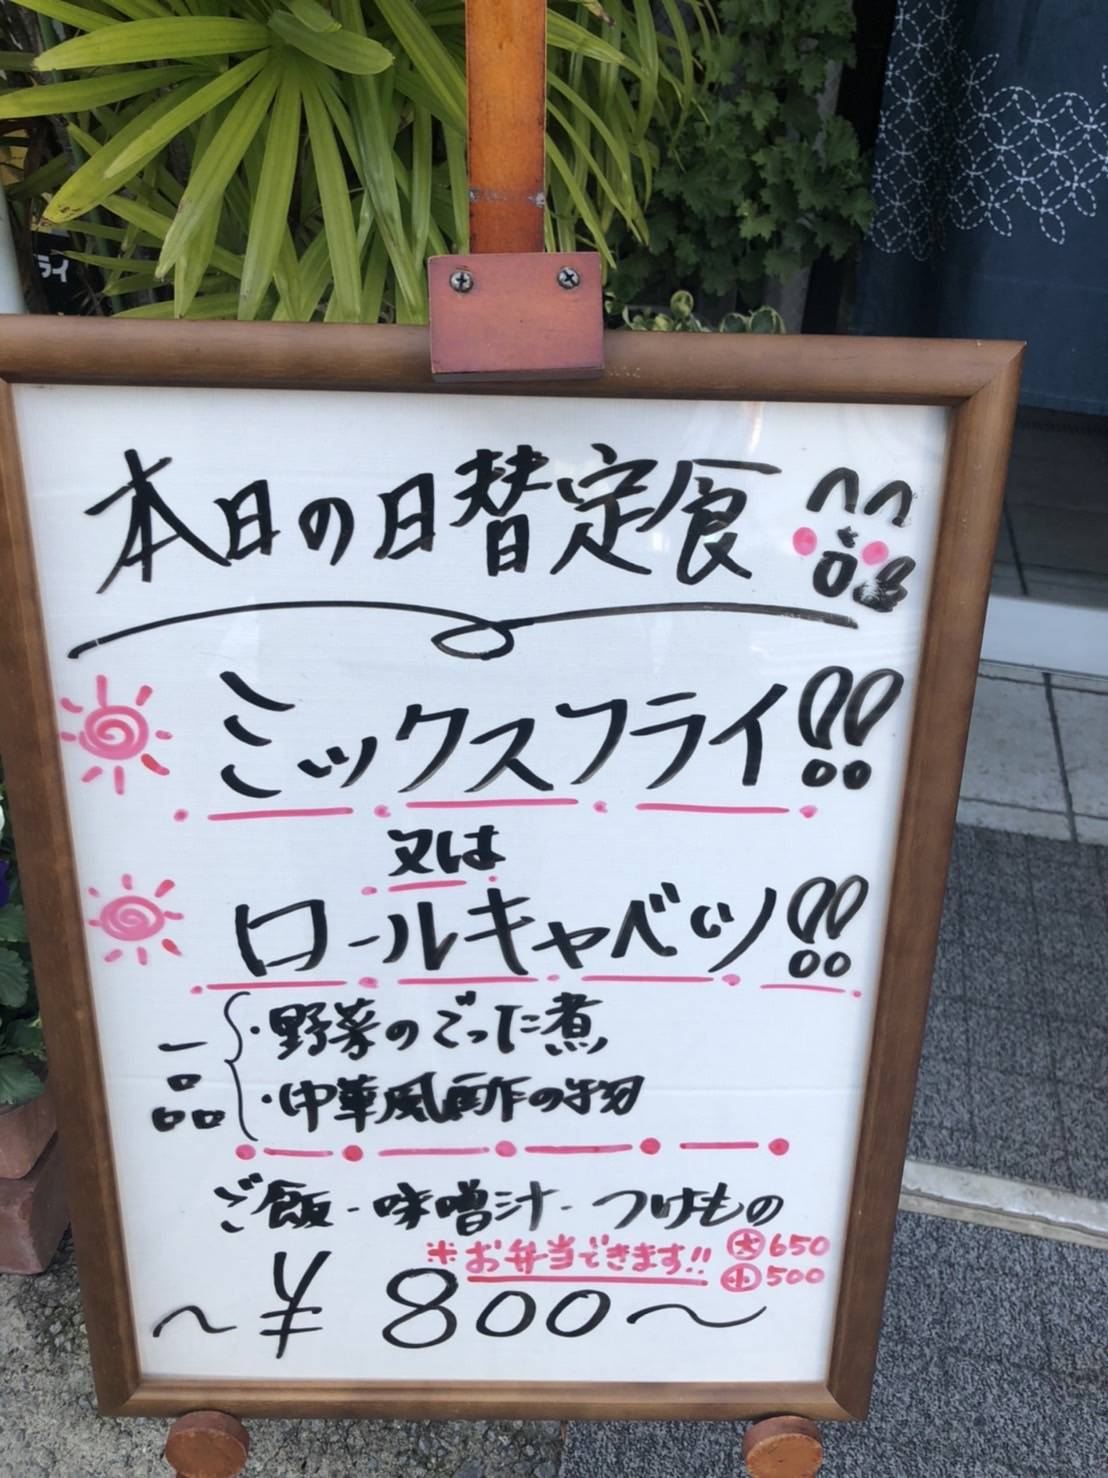 ライ
本日の日替定食
ミックスフライ!!
又は
ロールキャベツ!!
一品
・野菜のごった煮
・中華風酢の物
ご飯-味噌汁-つけもの
※お弁当できます!! 大650
小500
～¥800～